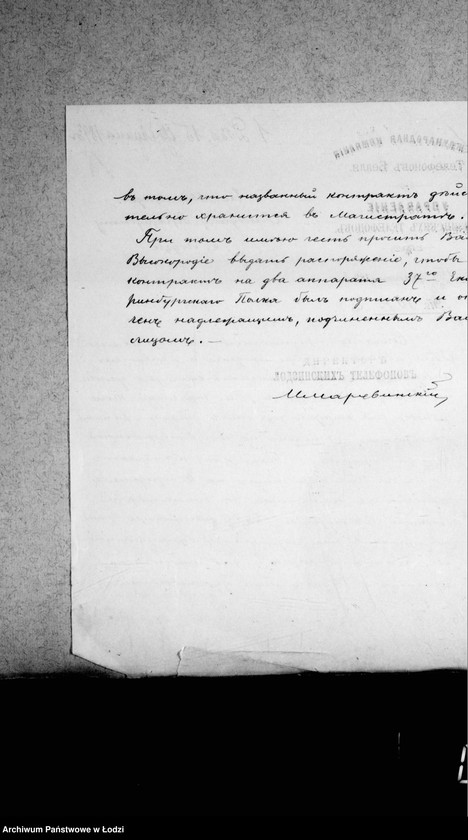 въ томъ, что названный контрактъ дѣйс
тельно хранится въ Магистратѣ.
При томъ имѣю честь просить Ва
Высокородіе выдать распоряженіе, чтобы
контрактъ на два аппарата 37го Ека
ринбургскаго Полка былъ подписанъ и о
ченъ надлежащимъ, подчиненнымъ Ва
лицомъ. —
ДИРЕКТОРЪ
ЛОДЗИНСКИХЪ ТЕЛЕФОНОВЪ
Archiwum Państwowe w Łodzi